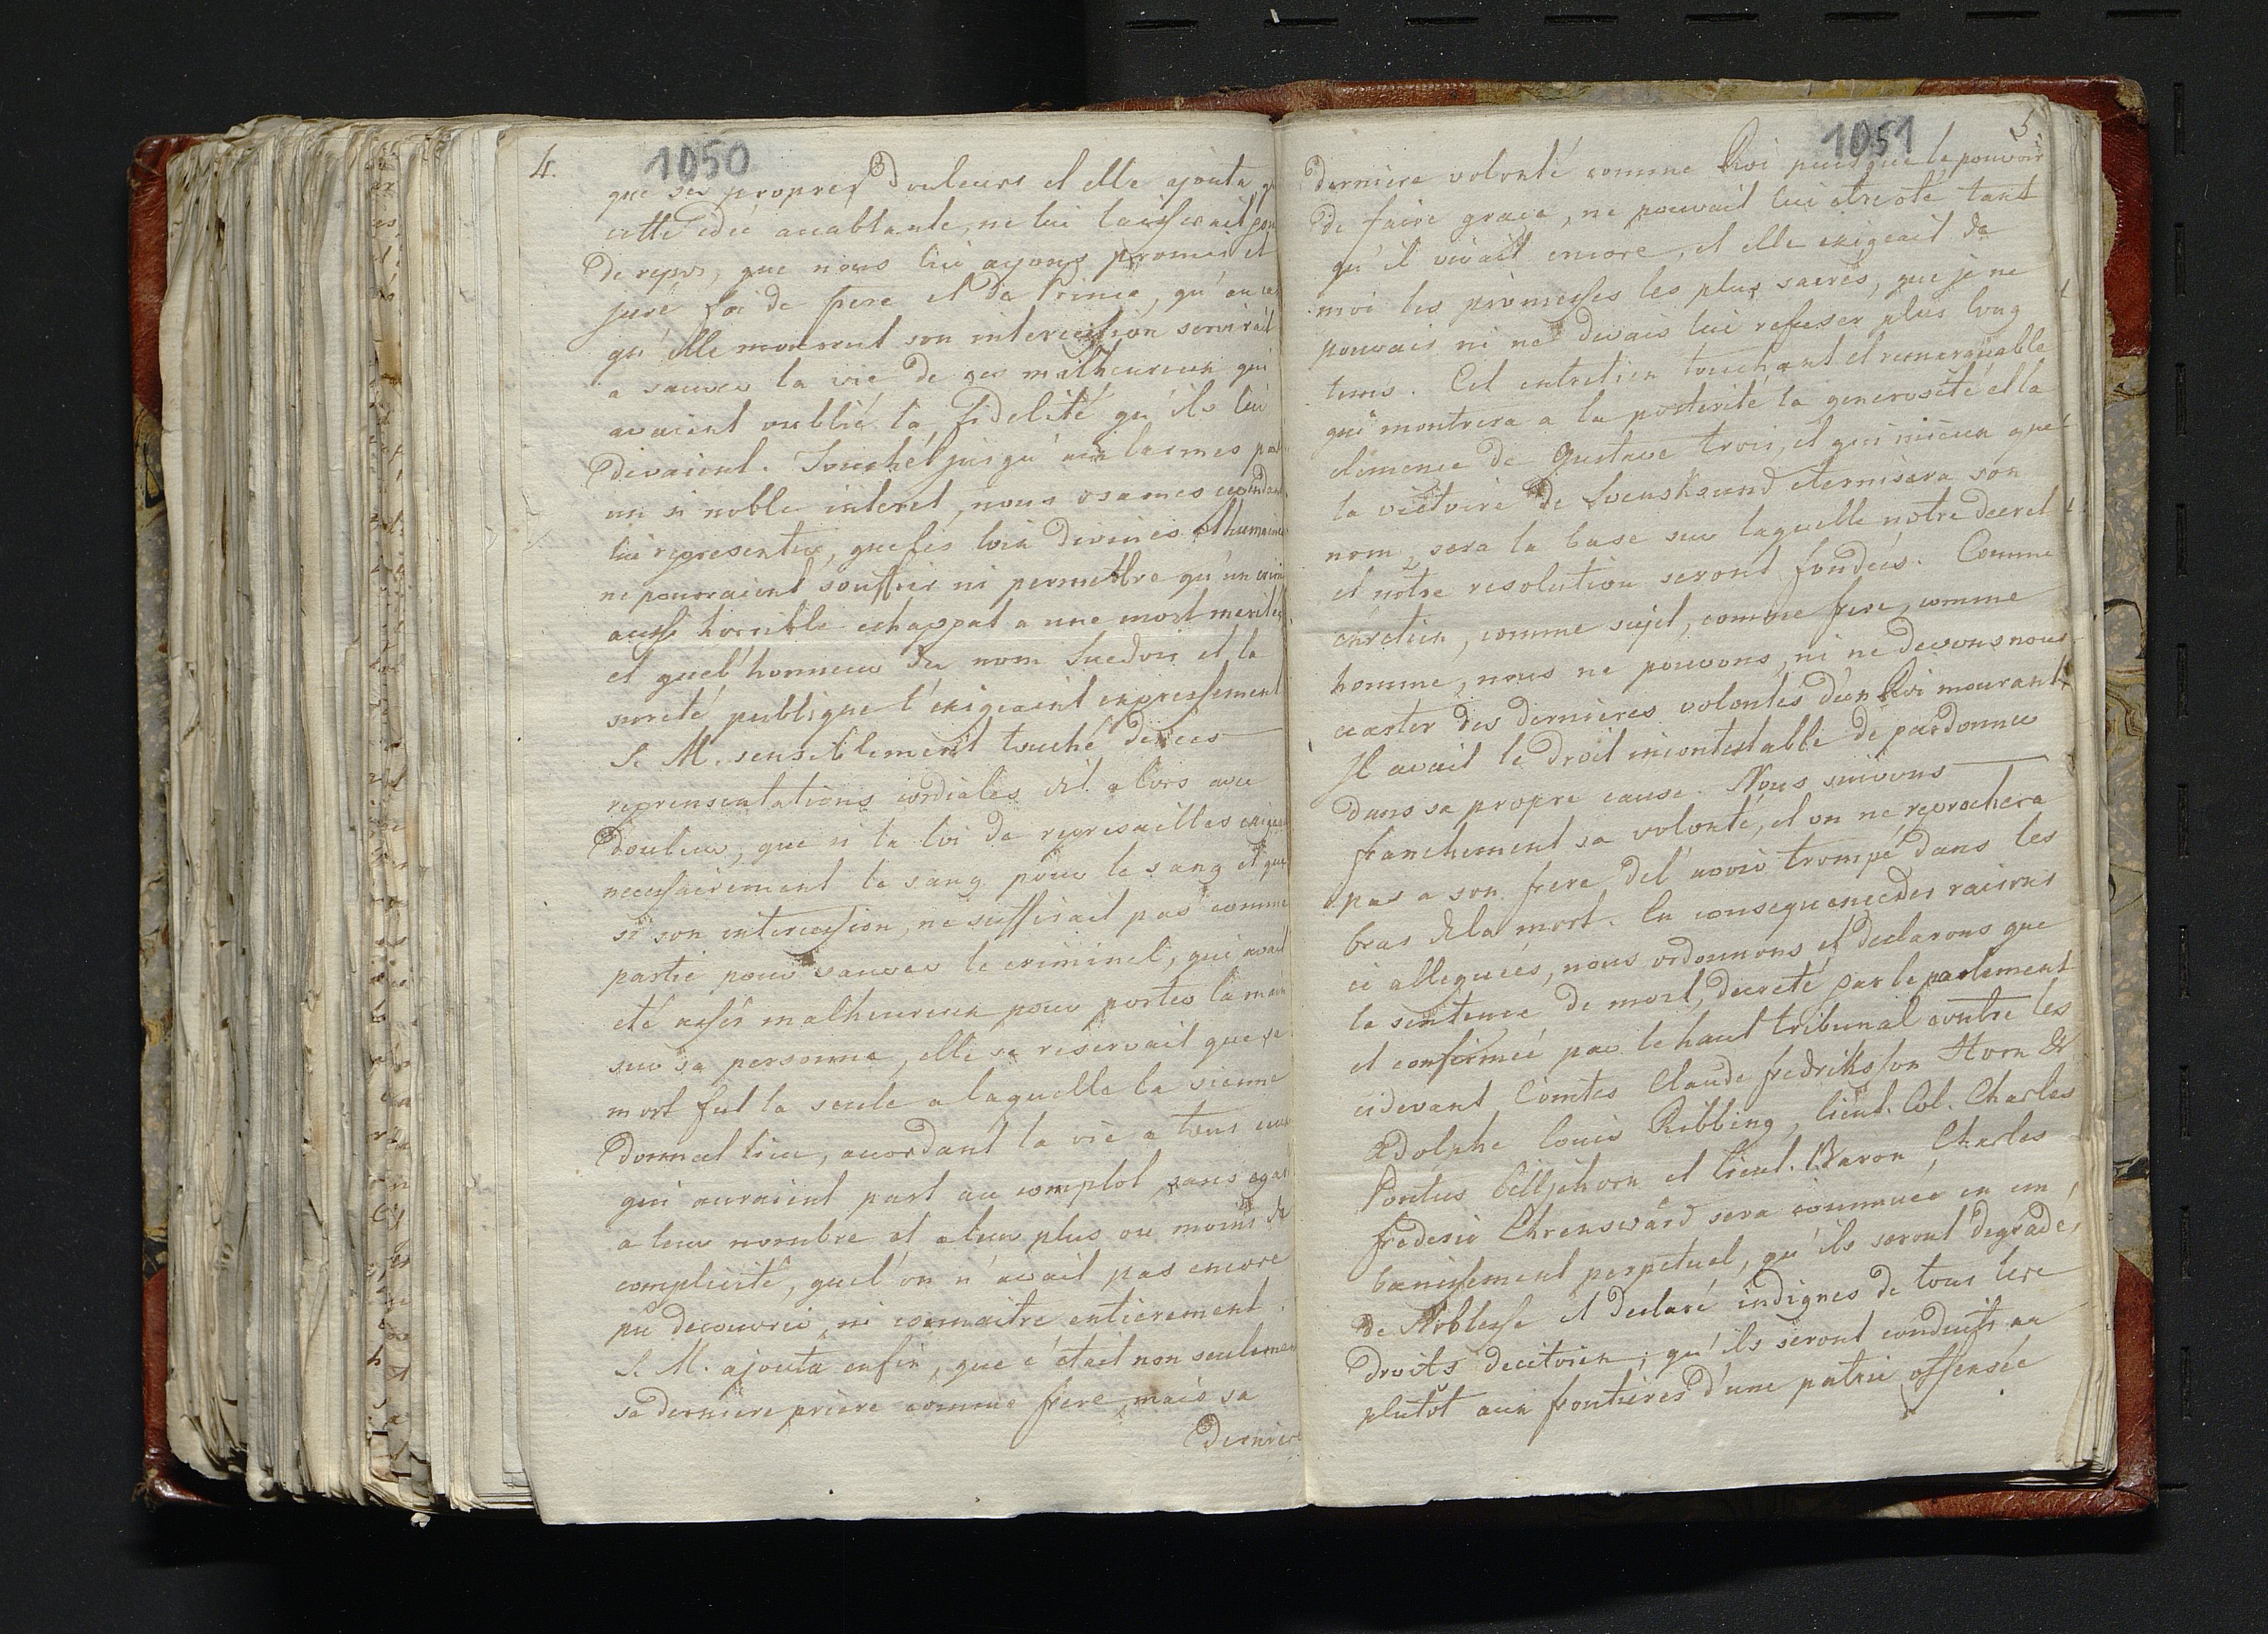 4.
1050
que ses propres douleurs et elle ajouta
cette idée accablante, ne lui laisserait
de repos, que nous lui ayons promis et
juré foi de frere et de Prince, qu'au
qu'elle mourrut son intercession servirait
a sauver la vie de ces malheureux qui
avaient oublié la fidelité qu'ils lui
devaient. Touché jusqu'aux larmes
un si noble interet, nous osames
lui representer, que les loix divines et humaines
ne pouvaient souffrir ni permettre qu'un crime
aussi horrible echappat a une mort meritée
et quel'honneur du nom Suedois et la
sureté publique l'exigeaint expressement
S. M. sensiblement touché de ces
reprensentations cordiales dit alors avec
douleur, que si la loi de represailles
necessairement le sang pour le sang et que
si son intercession, ne suffisait pas comme
partie pour sauver le criminel, qui avait
eté assés malheureux pour porter la main
sur sa personne, elle se reservait que sa
mort fut la seule a laquelle la sienne
donnat lieu, accordant la vie a tous ceux
qui auraient part au complot, sans
a leur nombre et a leur plus ou moins de
complicité, quel'on n'avait pas encore
pu decouvrir, ni connaitre entierement.
S. M. ajouta enfin, que c'était non seulement
sa derniere priere comme frere, mais sa
derniere
1051
5.
derniere volonté comme Roi puisque le pouvoir
de faire grace, ne pouvait lui etre oté tant
qu'il vivait encore, et elle exigeait de
moi les promesses les plus sacrés, que je ne
pouvais ni ne devais lui refuser plus long
tems. Cet entretien touchant et remarquable
qui montrera a la posterité la generosité et la
clemence de Gustave trois, et qui mieux que
la victoire de Svensksund eternisera son
nom, sera la base sur laquelle notre decret
et notre resolution seront fondées. Comme
chrétien, comme sujet, comme frere, comme
homme, nous ne pouvons, ni ne devons nous
ecarter des dernieres volontes d'un Roi mourant.
Il avait le droit incontestable de pardonner
dans sa propre cause. Nous suivons
franchement sa volonté, et on ne reprochera
pas a son frere del'avoir trompé dans les
bras dela mort. En consequence des raisons
ci alleguées, nous ordonnons et declarons que
la sentence de mort, decreté par le parlement
et confirmée par le haut tribunal contre les
cidevant Comtes Claude fredriksson Horn &
Adolphe Louis Ribbing, lieut. Col. Charles
Pontus Lilljehorn et lieut. Baron Charles
frederic Ehrensvärd sera commuée en un
banissement perpetuel, qu'ils seront degradés
de Noblesse et declaré indignes de tous
droits decitoien; qu'ils seront conduits au
plutôt aux frontieres d'une patrie offensée